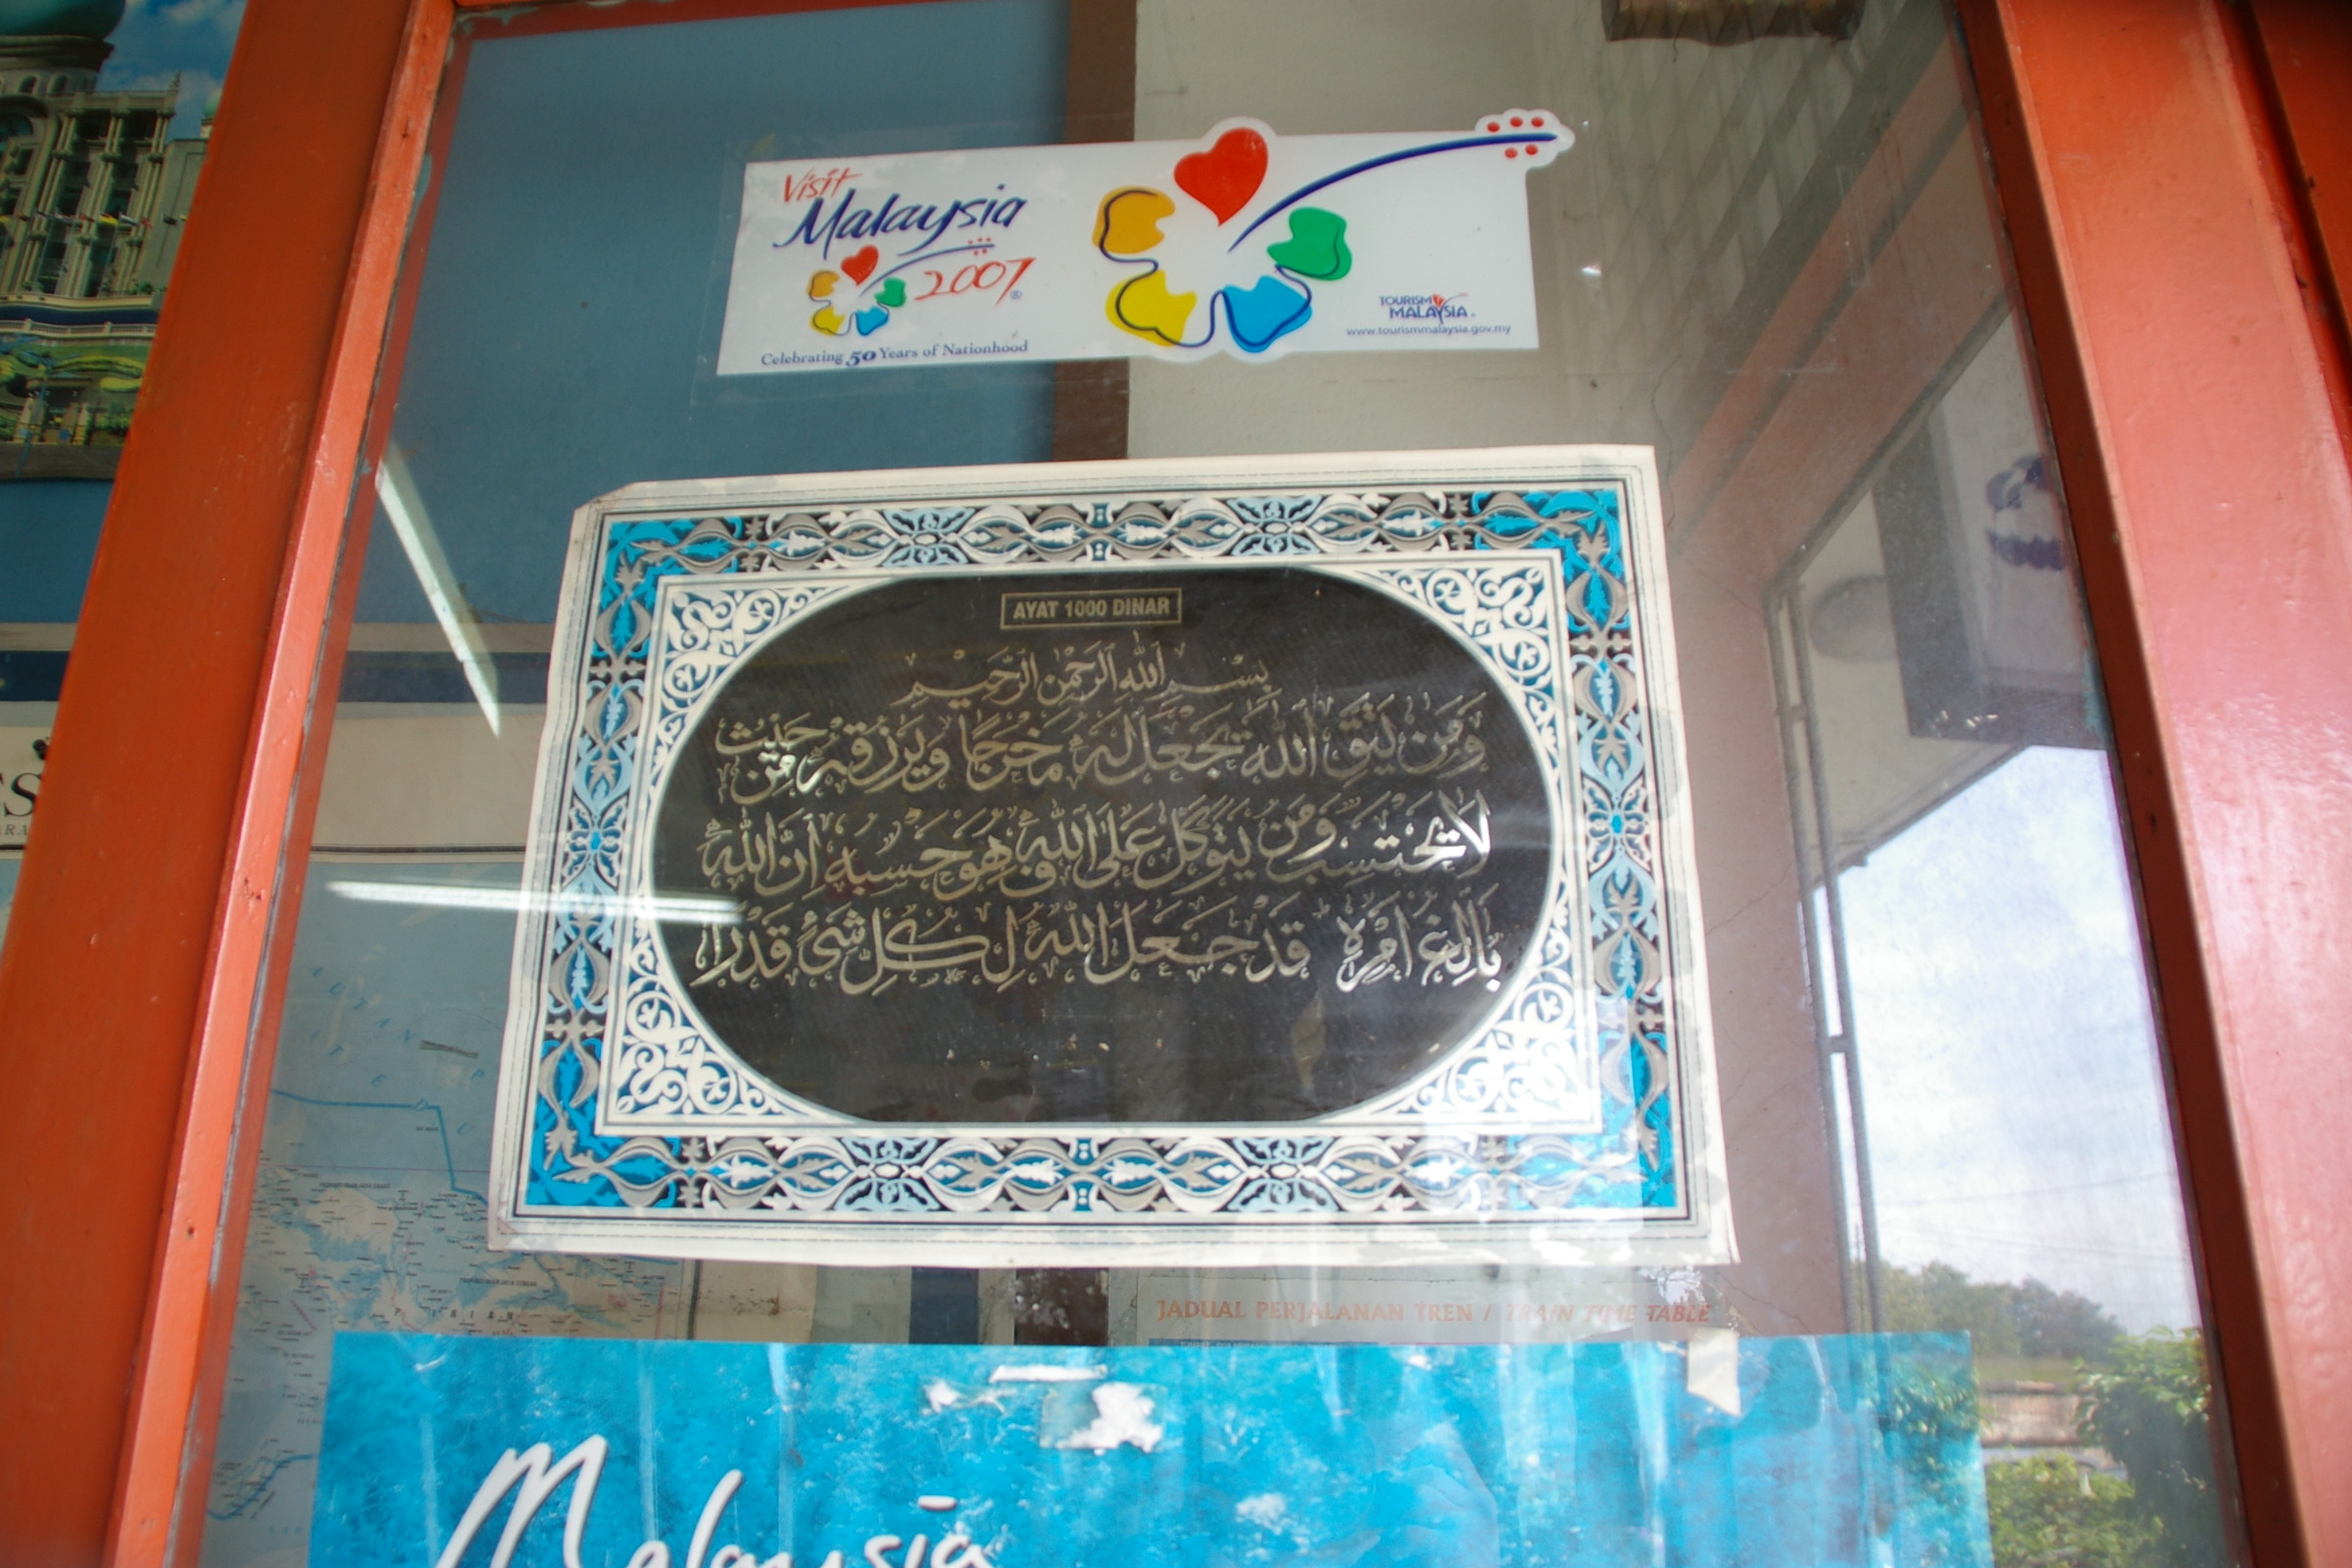 Visit
Malaysia
2007
Celebrating 50 Years of Nationhood
TOURISM
MALAYSIA
www.tourismmalaysia.gov.my
AYAT 1000 DINAR
بِسْمِ اللهِ الرَّحْمٰنِ الرَّحِيْمِ
وَمَن يَتَّقِ اللهَ يَجْعَل لَهُ مَخْرَجًا وَيَرْزُقْهُ مِنْ حَيْثُ
لَا يَحْتَسِبُ وَمَن يَتَوَكَّلْ عَلَى اللهِ فَهُوَ حَسْبُهُ إِنَّ اللهَ
بَالِغُ أَمْرِهِ قَدْ جَعَلَ اللهُ لِكُلِّ شَيْءٍ قَدْرًا
JADUAL PERJALANAN TREN / TRAIN TIME TABLE
Malaysia